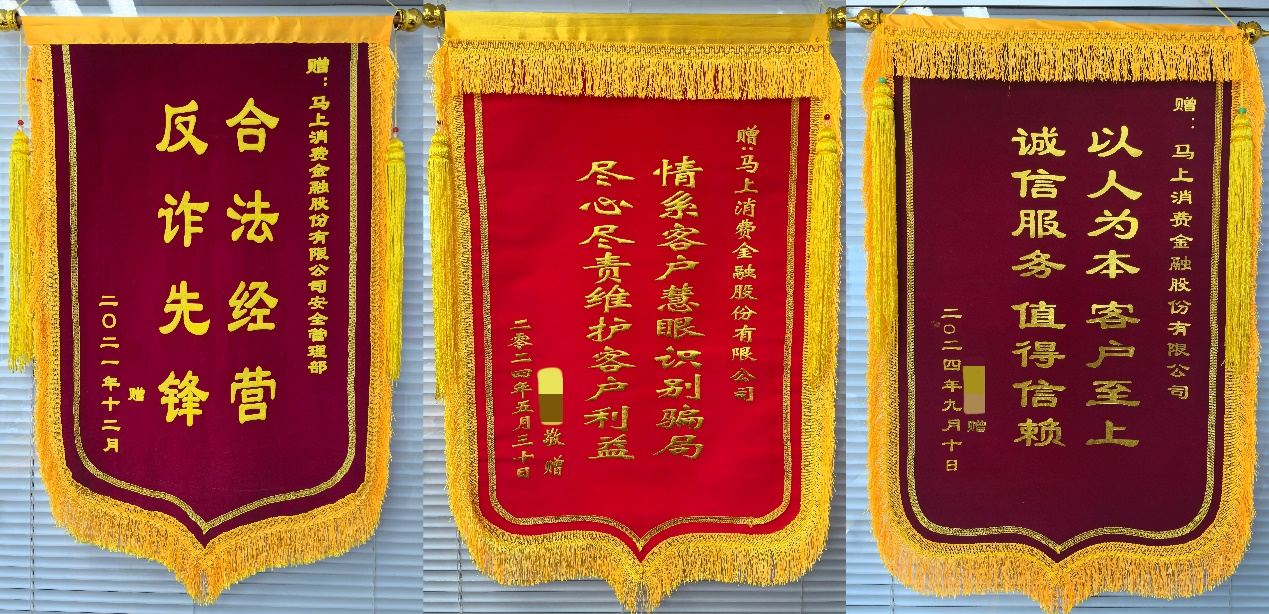 赠：马上消费金融股份有限公司安全管理部
合法经营
反诈先锋
赠
二〇二一年十二月
赠：马上消费金融股份有限公司
情系客户慧眼识别骗局
尽心尽责维护客户利益
敬赠
二零二四年五月三十日
赠：马上消费金融股份有限公司
以人为本 客户至上
诚信服务 值得信赖
赠
二〇二四年九月十日